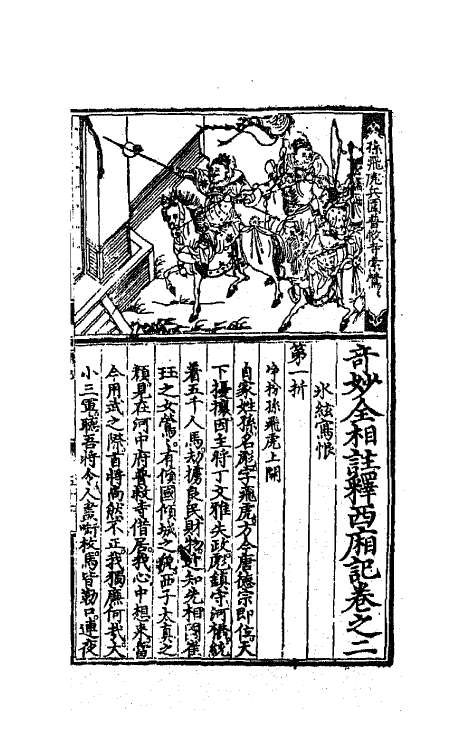 孫飛虎兵圍普救寺索鶯
奇妙全相註釋西廂記卷之二
氷絃寫恨
第一折
净扮孫飛虎上開
自家姓孫名彪字飛虎方今唐德宗即位天
下擾攘因主將丁文雅失政彪鎮守河橋統
着五千人馬劫擄良民財物近知先相國崔
珏之女鶯鶯有傾國傾城之貌西子太真之
顏見在河中府普救寺借居我心中想來當
今用武之際首將尚然不正我獨廉何哉大
小三軍聽吾將令人盡啣枚馬皆勒口連夜